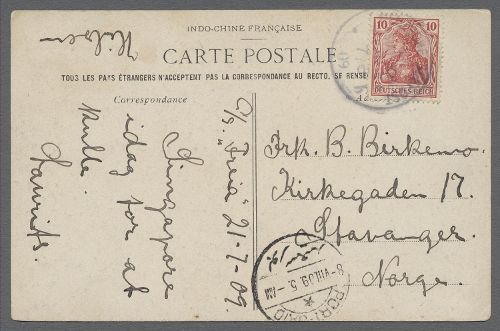 INDO-CHINE FRANÇAISE
CARTE POSTALE
TOUS LES PAYS ÉTRANGERS N'ACCEPTENT PAS LA CORRESPONDANCE AU RECTO. SE RENSE
Correspondance
Hilsen
D/S. "Freia" 21-7-09.
Singapore
idag for at
kulle.
Laurits.
Frk. B. Birkemo.
Kirkegaden 17.
Stavanger.
Norge.
10 10
DEUTSCHES REICH
09
PORT SAID
8-VIII.09. 5. AM